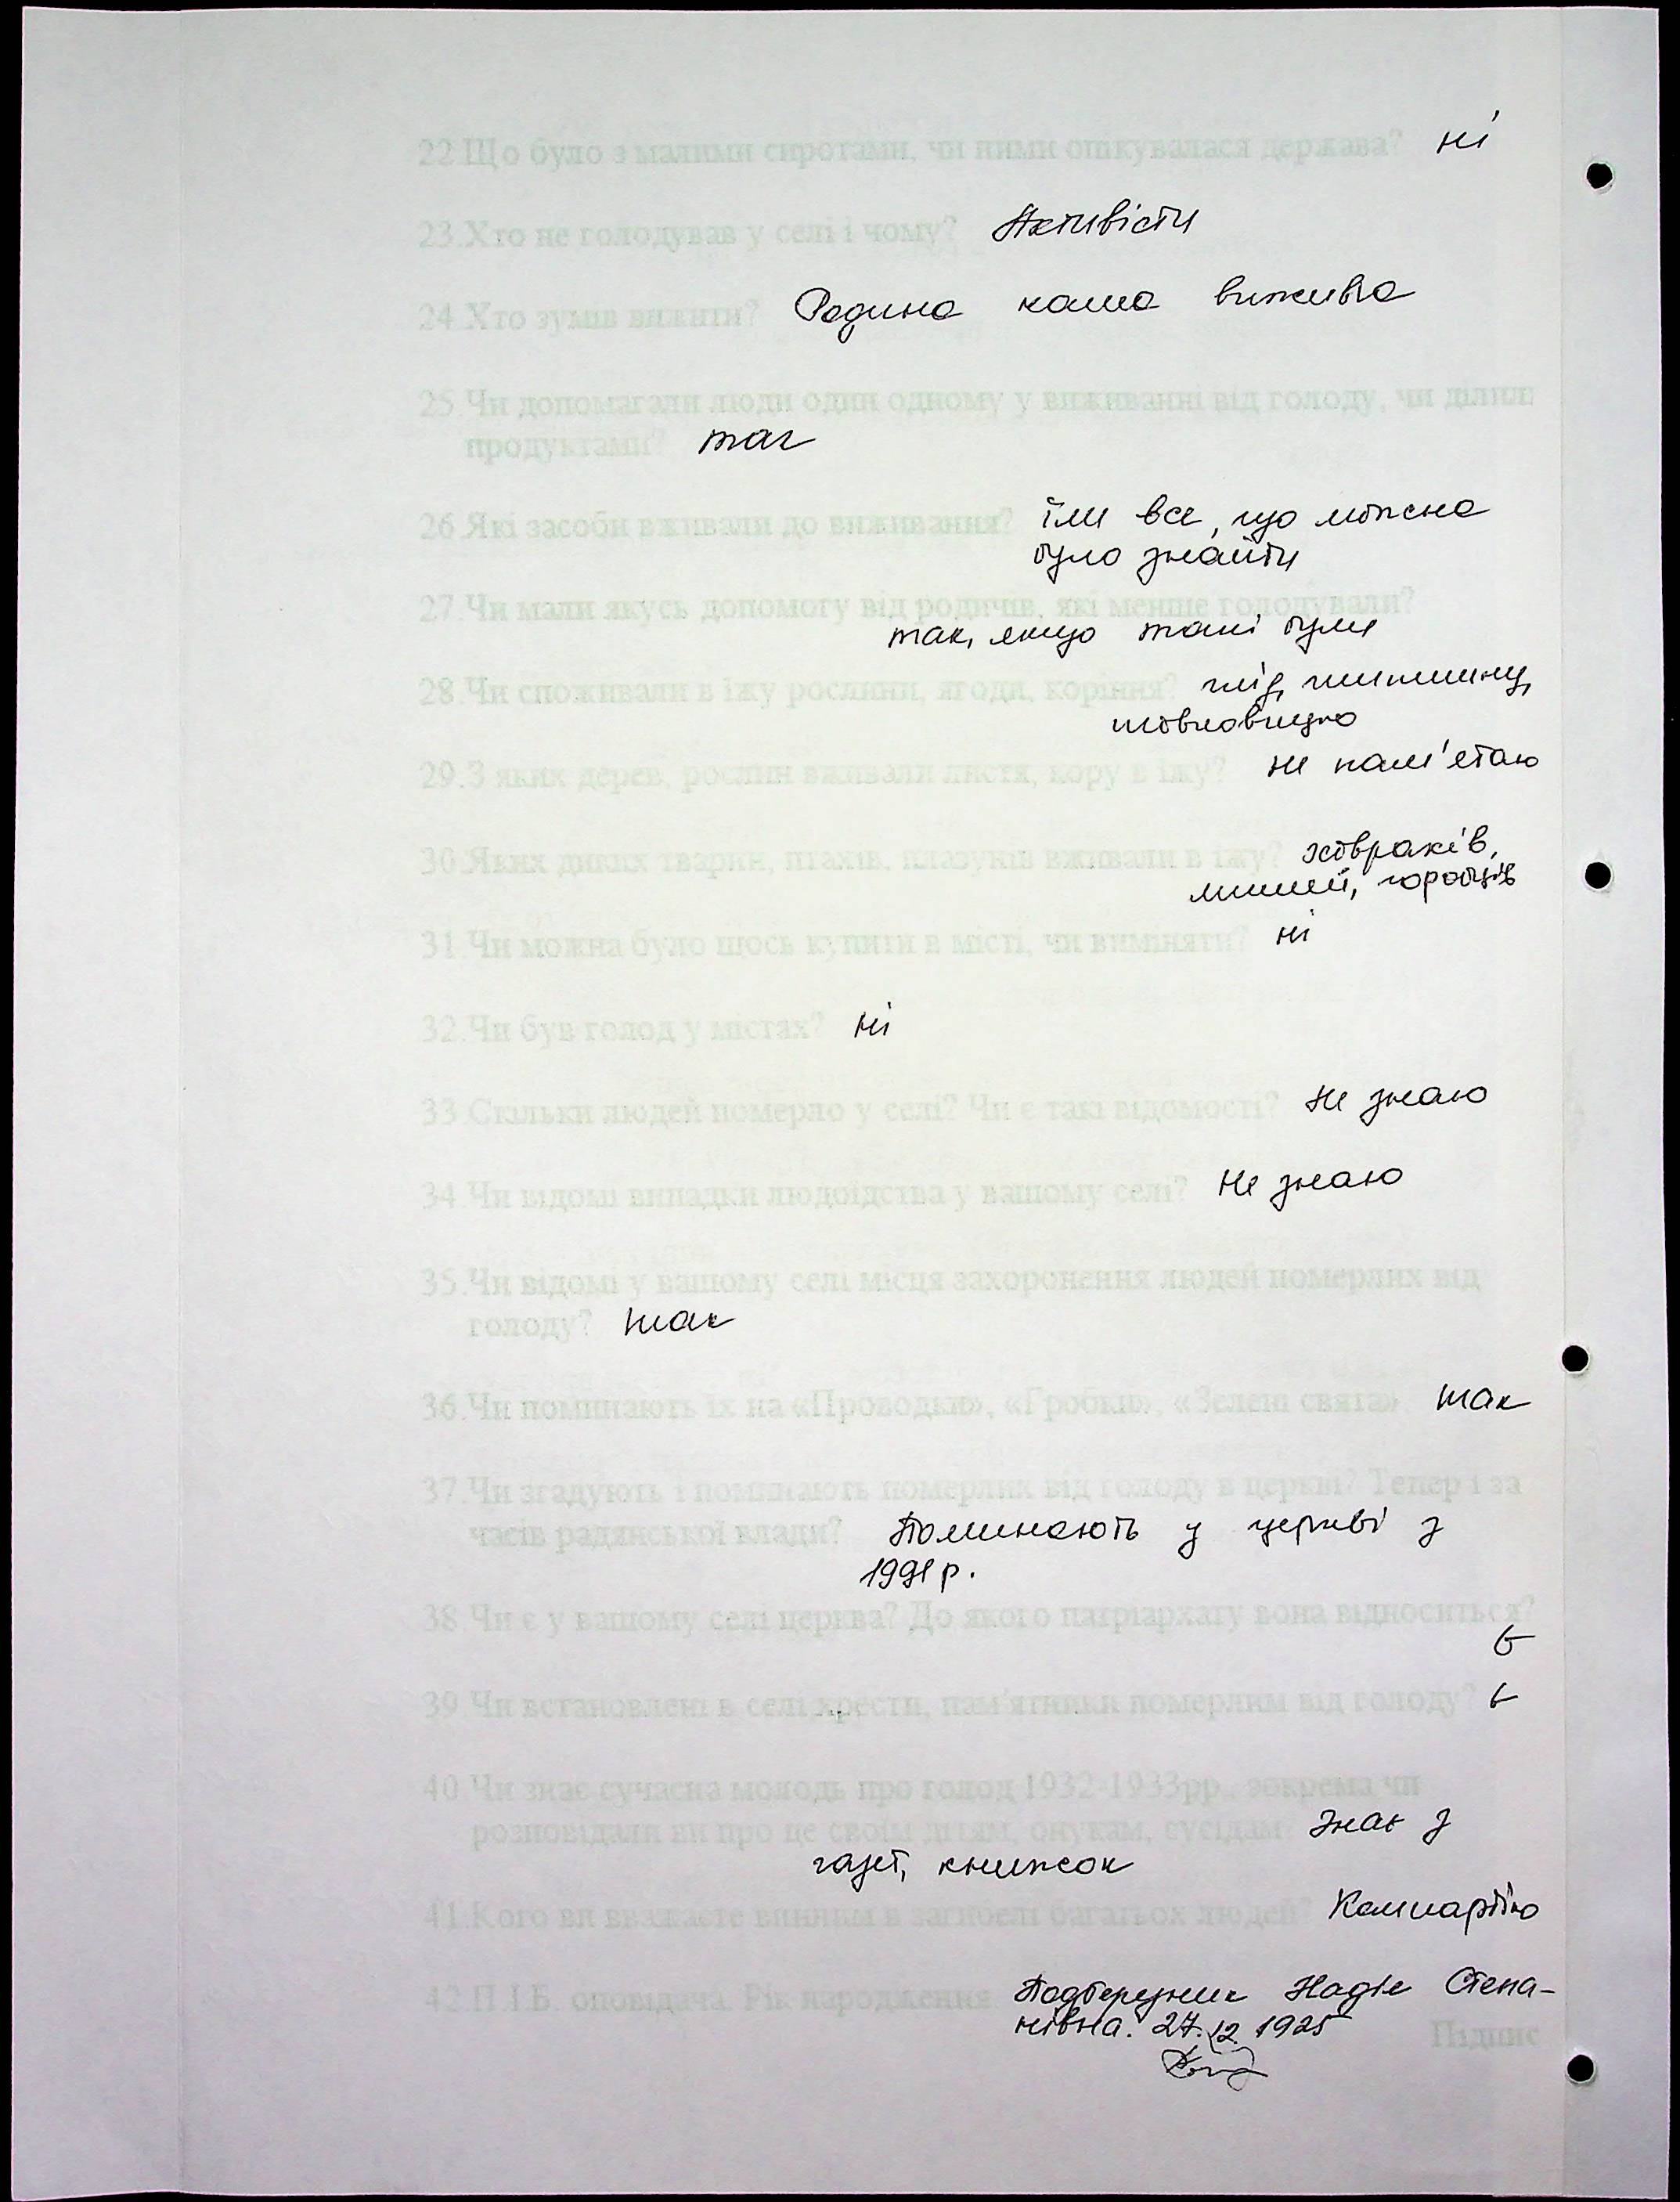 22.Що було з малими сиротами, чи ними опікувалася держава? ні
23.Хто не голодував у селі і чому? Активісти
24.Хто зумів вижити? Родина наша вижива
25.Чи допомагали люди один одному у виживанні від голоду, чи ділил
продуктами? так
26.Які засоби вживали до виживання? їли все, що можна
було знайти
27.Чи мали якусь допомогу від родичів, які менше голодували?
так, якщо такі були
28.Чи споживали в їжу рослини, ягоди, коріння? глід, шипшину,
шовковицю
29.З яких дерев, рослин вживали листя, кору в їжу? не пам'ятаю
30.Яких диких тварин, птахів, плазунів вживали в їжу? ховрахів,
мишей, горобців
31.Чи можна було щось купити в місті, чи виміняти? ні
32.Чи був голод у містах? ні
33.Скільки людей померло у селі? Чи є такі відомості? не знаю
34.Чи відомі випадки людоїдства у вашому селі? Не знаю
35.Чи відомі у вашому селі місця захоронення людей померлих від
голоду? так
36.Чи поминають їх на «Проводки», «Гробки», «Зелені свята» так
37.Чи згадують і поминають померлих від голоду в церкві? Тепер і за
часів радянської влади? Поминають у церкві з
1991 р.
38.Чи є у вашому селі церква? До якого патріархату вона відноситься?
Є
39.Чи встановлені в селі хрести, пам'ятники померлим від голоду? є
40.Чи знає сучасна молодь про голод 1932-1933рр., зокрема чи
розповідали ви про це своїм дітям, онукам, сусідам знає з
газет, книжок
41.Кого ви вважаєте винним в загибелі багатьох людей? Компартію
42.П.І.Б. оповідача. Рік народження Надія Степа-
нівна. 27.12.1925
Підпис